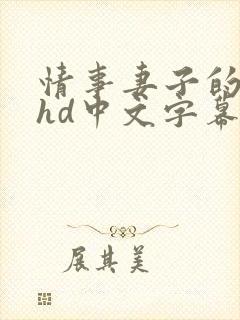 情事妻子的
hd中文字幕
展其美